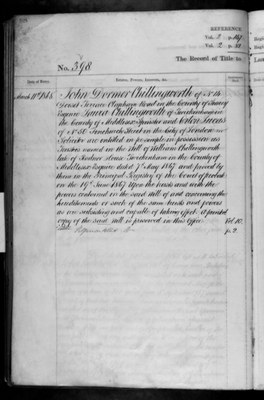 REFERENCE
Vol. 2 p.
Vol. 2 p.
The Record of Title to
No. 398
Date of Entry.
Estates, Powers, Interests, &c.
John Dormer Chillingworth of No. 14
Dorset Terrace Clapham Road in the County of Surrey
Esquire Laura Chillingworth of Twickenham in
the County of Middlesex Spinster and
of No. 50 Fenchurch Street in the City of London
Solicitor are entitled in fee simple in possession as
Trustees named in the Will of William Chillingworth
late of House Twickenham in the County of
Middlesex Esquire dated 7th May 1867 and proved by
them in the Principal Registry of the Court of Probate
on the 19th June 1867 Upon the trusts and with the
powers contained in the said Will of and concerning the
hereditaments or such of the same trusts and powers
as are subsisting and capable of taking effect. A printed
copy of the said Will is preserved in this Office Vol. 10.
p. 2.